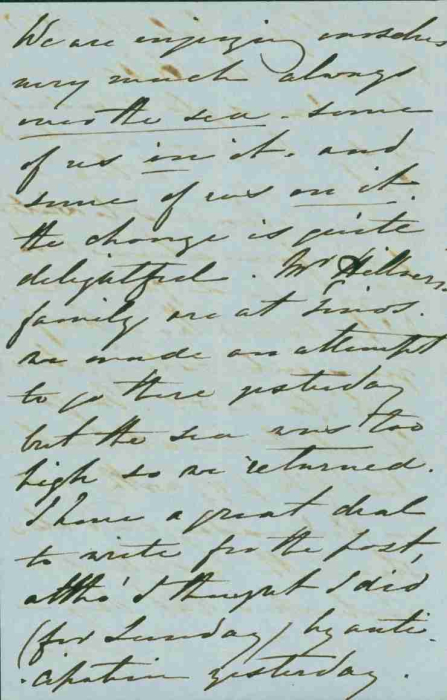 We are enjoying ourselves
very much always
over the sea - some
of us in it. and
some of us on it.
the change is quite
delightful. Mr
family are at Tinos.
we made an attempt
to go there yesterday
but the sea was too
high so we returned.
I have a great deal
to write for the post,
altho' I thought I did
(for Sunday) by anti-
-cipation yesterday.